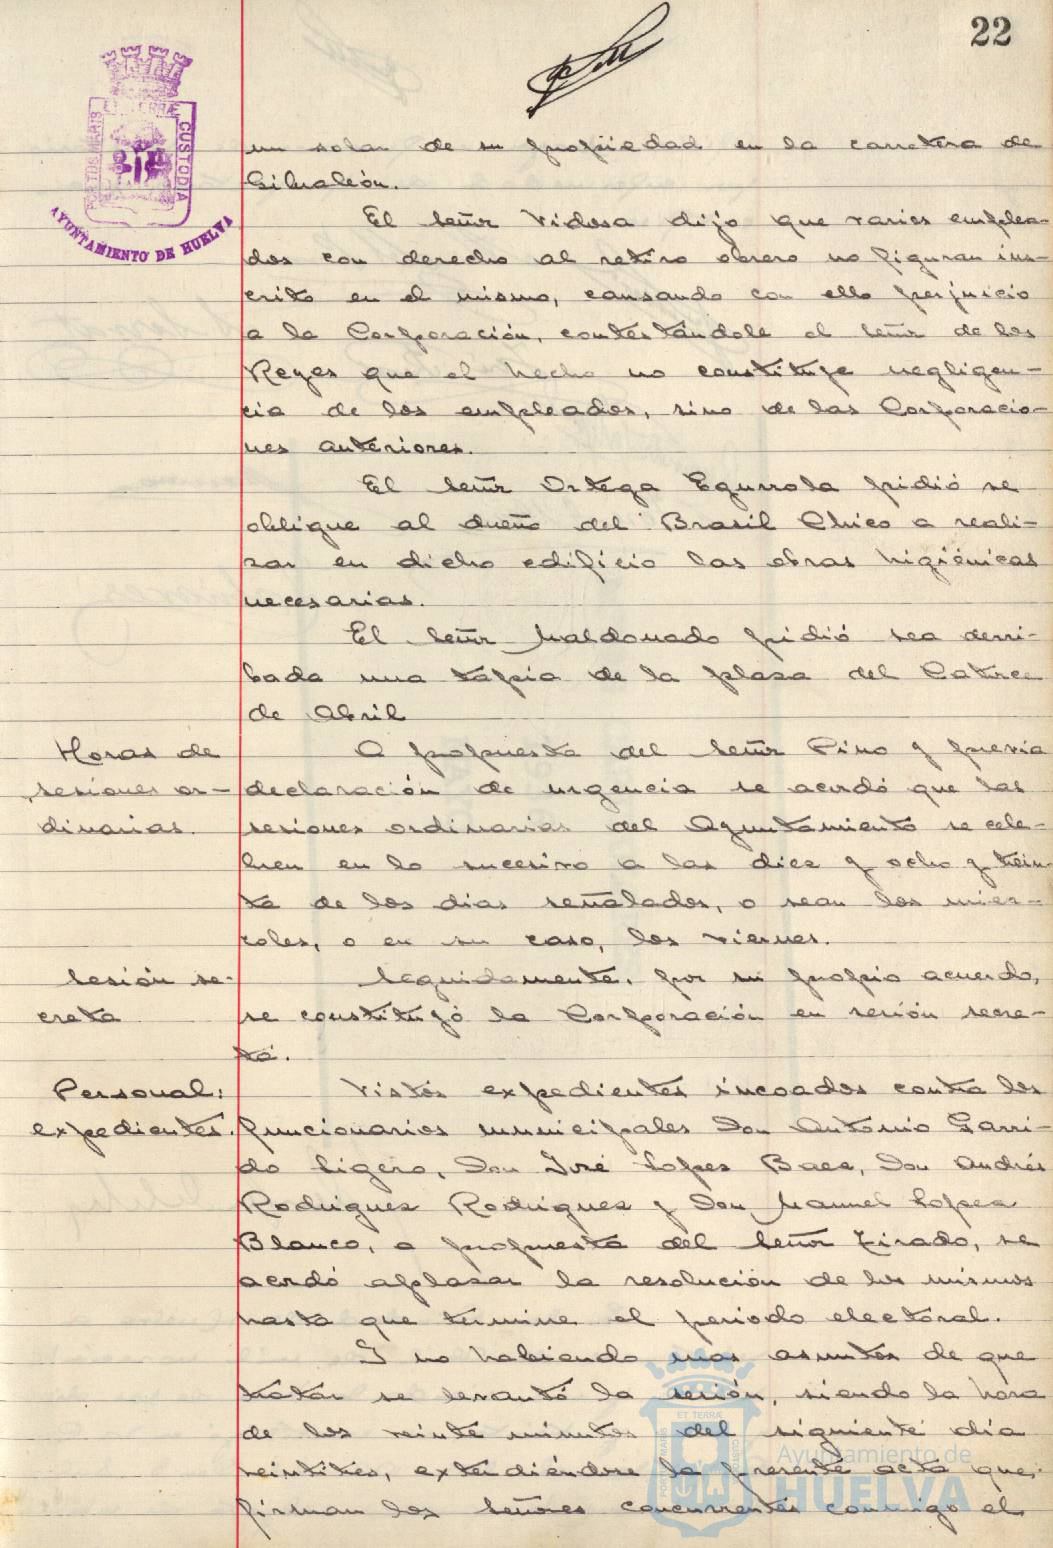 22
PORTUS MARIS ET TERRÆ CUSTODIA
AYUNTAMIENTO DE HUELVA
un solar de su propiedad en la carretera de
Gibraleón.
El señor Vidosa dijo que varios emplea-
dos con derecho al retiro obrero no figuran ins-
crito en el mismo, causando con ello perjuicio
a la Corporación, contestándole el señor de los
Reyes que el hecho no constituye negligen-
cia de los empleados, sino de las Corporacio-
nes anteriores.
El señor Ortega Egurrola pidió se
obligue al dueño del Brasil Chico a reali-
zar en dicho edificio las obras higiénicas
necesarias.
El señor Maldonado pidió sea derri-
bada una tapia de la plaza del Catorce
de Abril
Horas de
sesiones or-
dinarias.
A propuesta del señor Pino y previa
declaración de urgencia se acordó que las
sesiones ordinarias del Ayuntamiento se cele-
bren en lo sucesivo a las diez y ocho y trein-
ta de los días señalados, o sean los miér-
coles, o en su caso, los viernes.
Sesión se-
creta
Seguidamente, por su propio acuerdo,
se constituyó la Corporación en sesión secre-
ta.
Personal:
expedientes.
Vistos expedientes incoados contra los
funcionarios municipales Don Antonio Garri-
do Ligero, Don José Lopez Baez, Don Andrés
Rodriguez Rodriguez y Don Manuel Lopez
Blanco, a propuesta del señor Tirado, se
acordó aplazar la resolución de los mismos
hasta que termine el periodo electoral.
Y no habiendo mas asuntos de que
tratar se levantó la sesión, siendo la hora
de los veinte minutos del siguiente día
veintitres, extendiéndose la presente acta que,
firman los señores concurrentes conmigo el
Ayuntamiento de
HUELVA